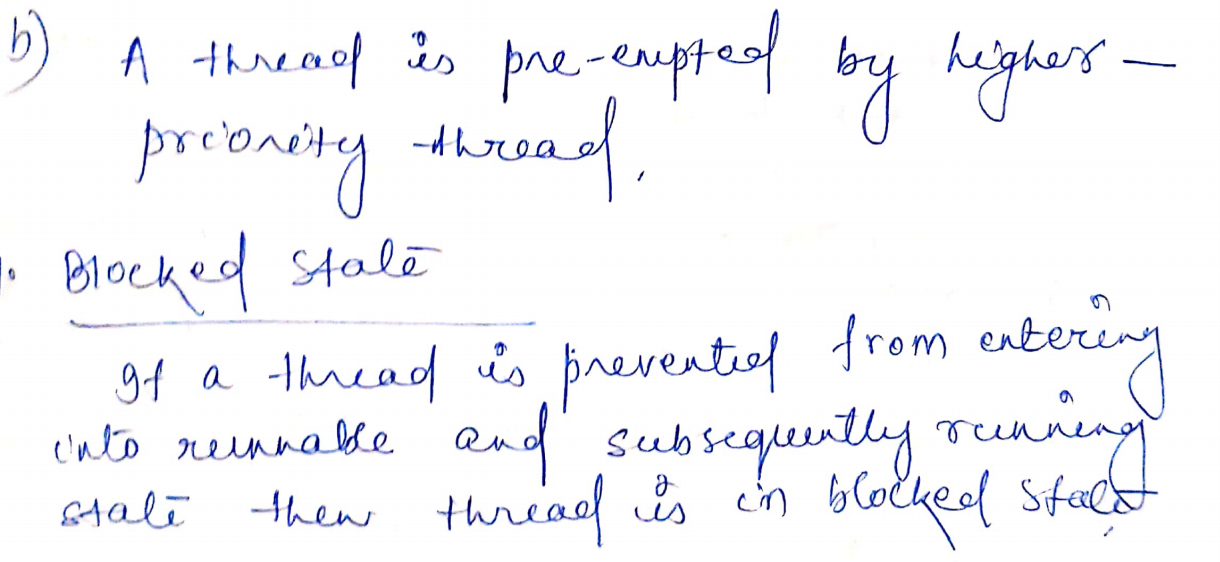 b) A thread is pre-empted by higher-
priority thread.
. Blocked state
If a thread is prevented from entering
into runnable and subsequently running
state then thread is in blocked state.